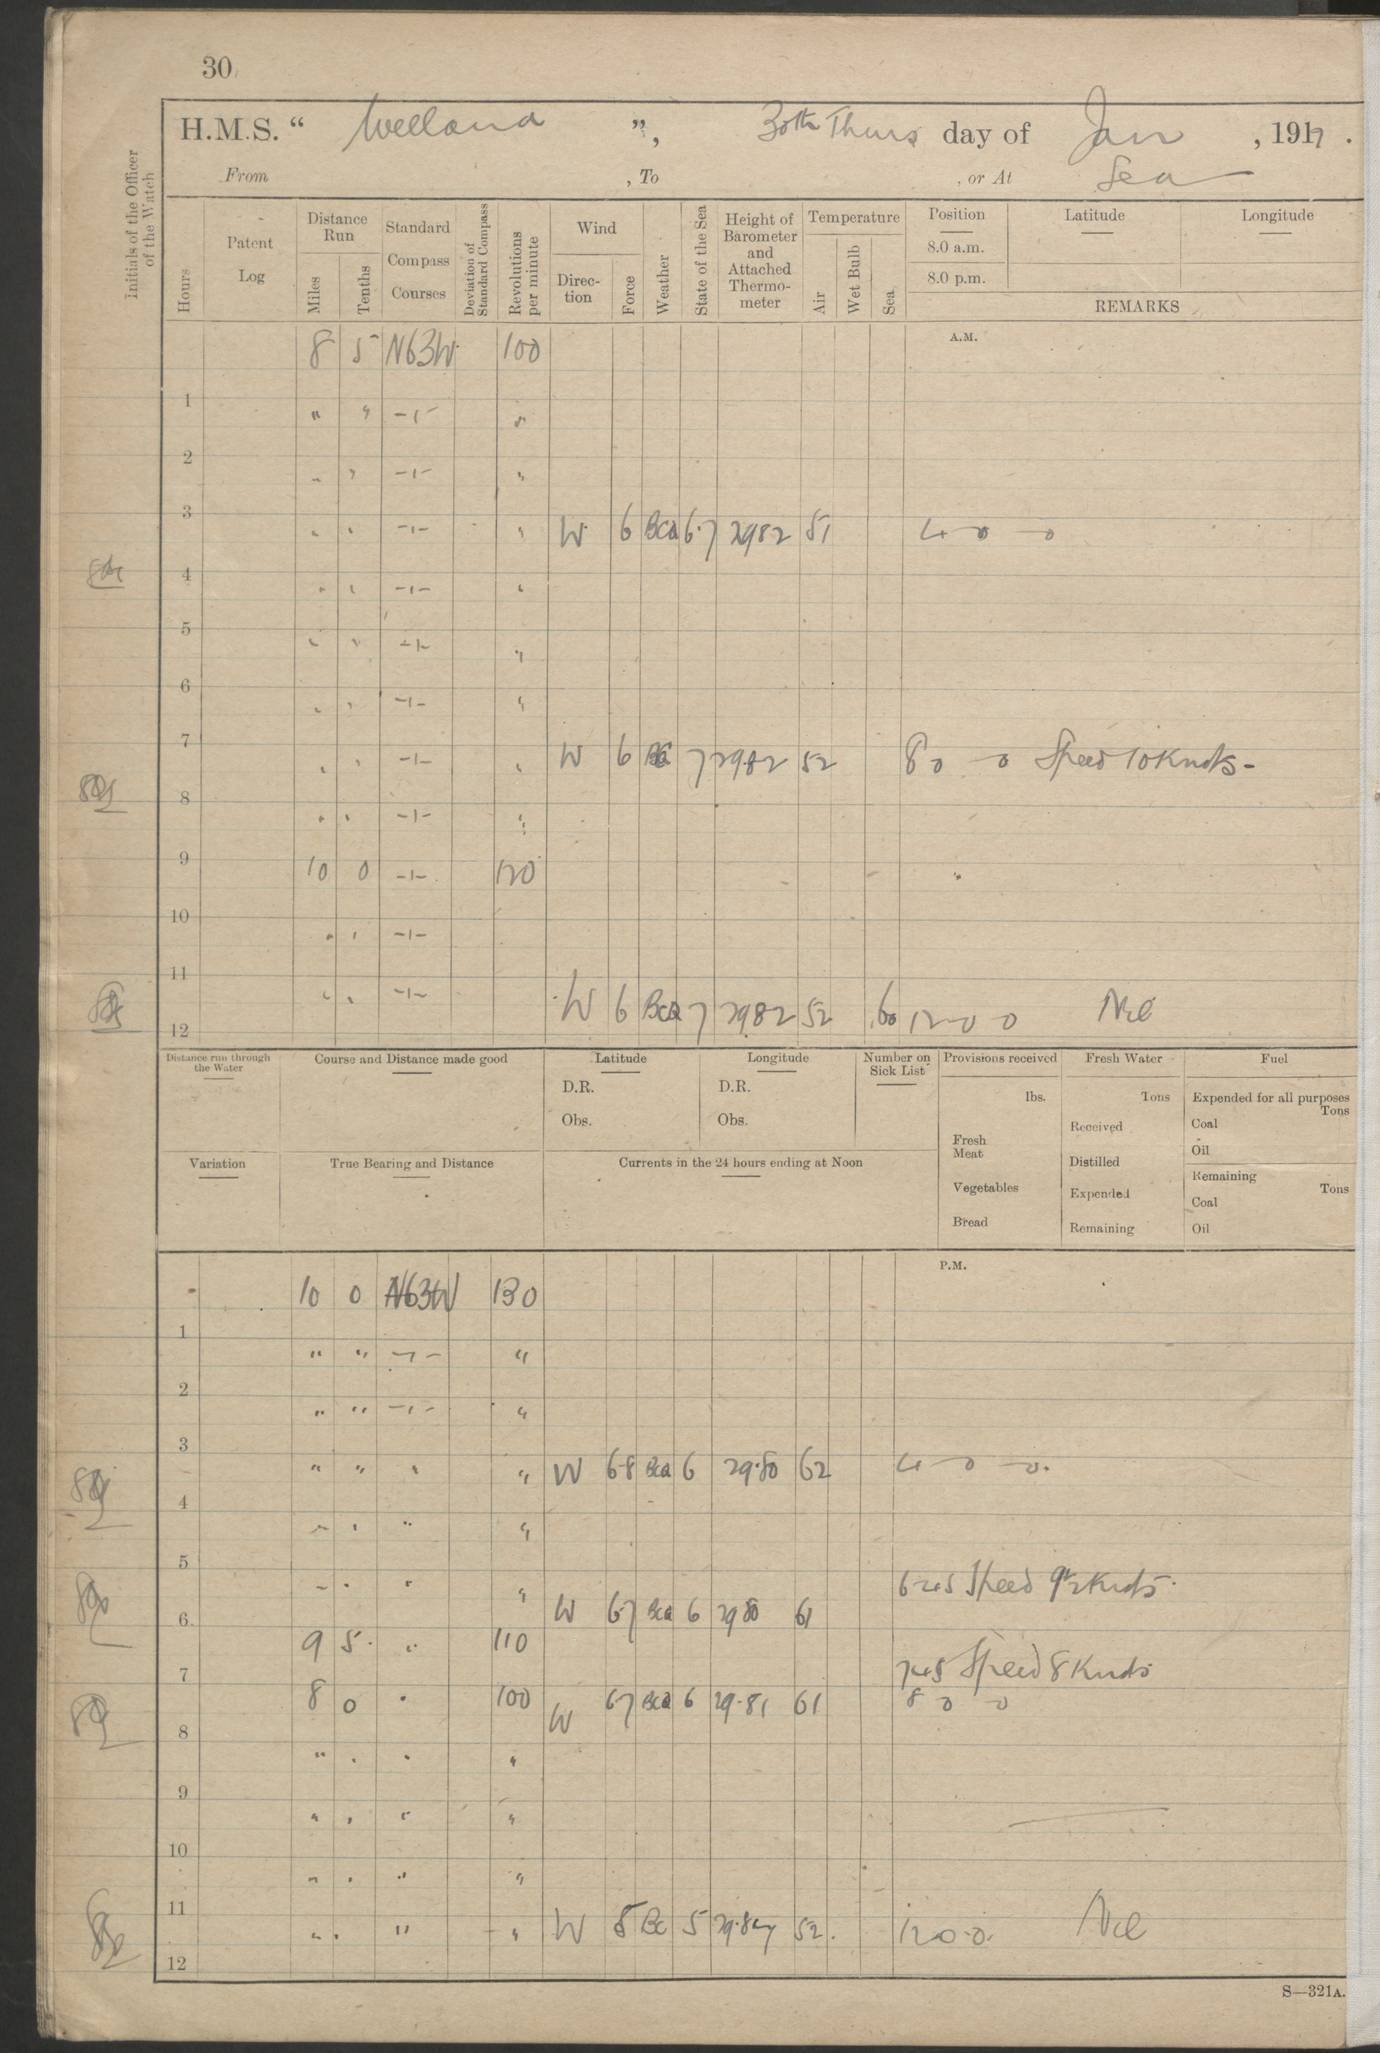 30
H.M.S. “ Welland ”, 30th Thurs day of Jan , 1917 .
From , To , or At Sea
Initials of the Officer of the Watch
Hours
Patent Log
Distance Run
Miles
Tenths
Standard Compass Courses
Deviation of Standard Compass
Revolutions per minute
Wind
Direc-tion
Force
Weather
State of the Sea
Height of Barometer and Attached Thermo-meter
Temperature
Air
Wet Bulb
Sea
Position
8.0 a.m.
8.0 p.m.
Latitude
Longitude
REMARKS
A.M.
8 5 N63W 100
1
" " -"- "
2
" " -"- "
3
" " -"- " W 6 BCQ 6.7 2982 51 4 0 0
4
" " -"- "
5
" " -"- "
6
" " -"- "
7
" " -"- " W 6 7 2982 52 8 0 0 Speed 10 Knots -
8
" " -"- "
9
10 0 -"- 120
10
" " -"-
11
" " -"- W 6 BCQ 7 2982 52 60 12 0 0 Nil
12
Distance run through the Water
Course and Distance made good
Latitude
D.R.
Obs.
Longitude
D.R.
Obs.
Number on Sick List
Provisions received
lbs.
Fresh Meat
Vegetables
Bread
Fresh Water
Tons
Received
Distilled
Expended
Remaining
Fuel
Expended for all purposes
Tons
Coal
Oil
Remaining
Tons
Coal
Oil
Variation
True Bearing and Distance
Currents in the 24 hours ending at Noon
P.M.
10 0 N63W 130
1
" " -"- "
2
" " -"- "
3
" " " " W 6.8 BCQ 6 29.80 62 4 0 0.
4
" " " "
5
" " " " W 6.7 BCQ 6 29 80 61 6 45 Speed 9½ Knots.
6
9 5 " 110
7 45 Speed 8 Knots
7
8 0 " 100 W 6.7 BCQ 6 29.81 61 8 0 0
8
" " " "
9
" " " "
10
" " " "
11
" " " " W 5 BC 5 52. 12 0.0. Nil
12
S—321A.